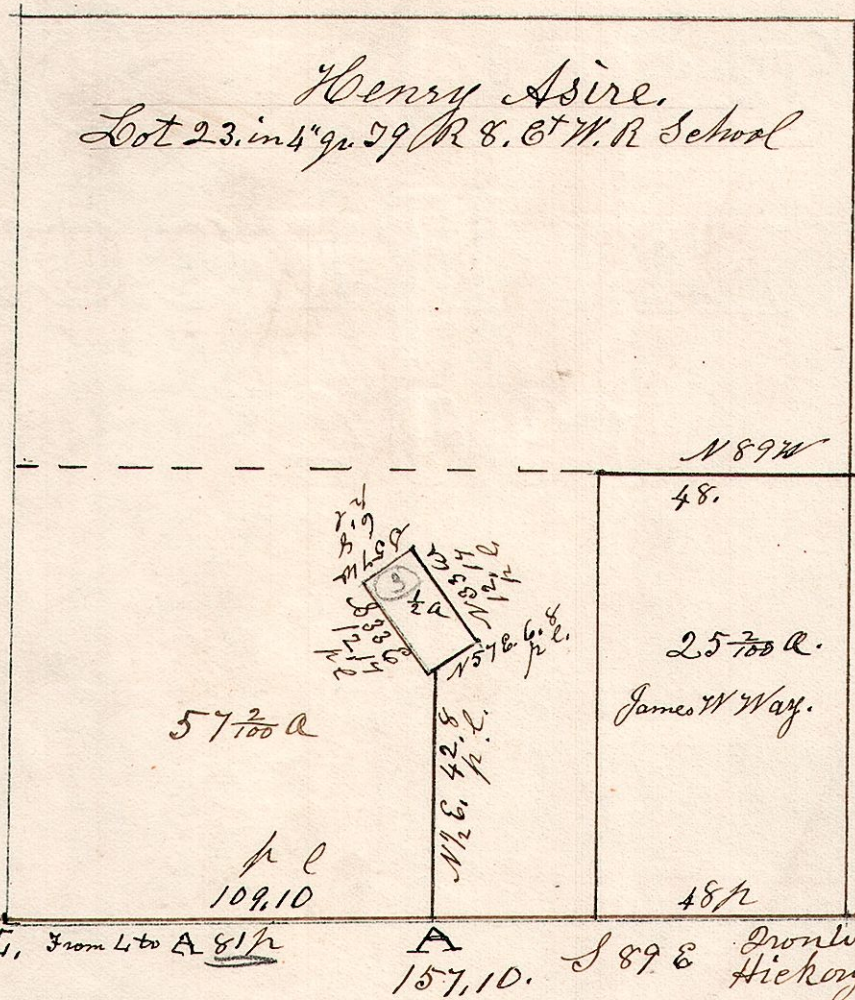 Henry Asire.
Lot 23. in 4" qr. T9 R 8. Et W. R School
N 89 W
48.
S 57 W
6. 8
p. l.
N 33 W
12. 17
p. l.
9
½ a
S 33 E
12. 17
p l
N 57 E. 6. 8
p l.
25 2/100 a.
James W Way.
57 2/100 a
N ½ E. 42. 8
p. l.
p l
109.10
48 p
From 4 to A 81 p
A
157,10.
S 89 E
Hickory